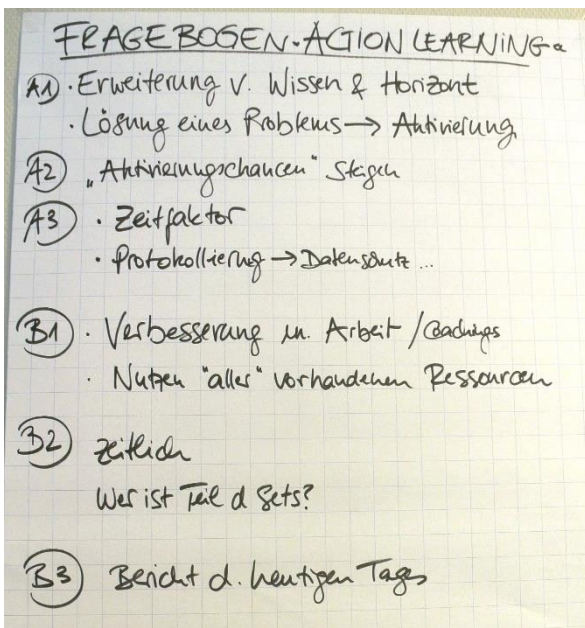 FRAGEBOGEN · ACTION LEARNING
A1 · Erweiterung v. Wissen & Horizont
· Lösung eines Problems → Aktivierung
A2 „Aktivierungschancen“ steigen
A3 · Zeitfaktor
· Protokollierung → Datenschutz ...
B1 · Verbesserung m. Arbeit / Coachings
· Nutzen "aller" vorhandenen Ressourcen
B2 zeitlich
Wer ist Teil d Sets?
B3 Bericht d. heutigen Tages